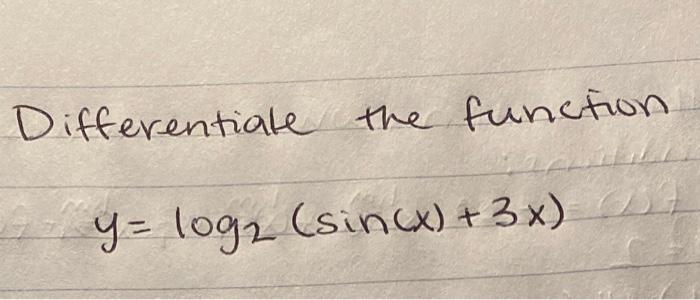 Differentiate the function
y = log₂ (sin(x) + 3x)